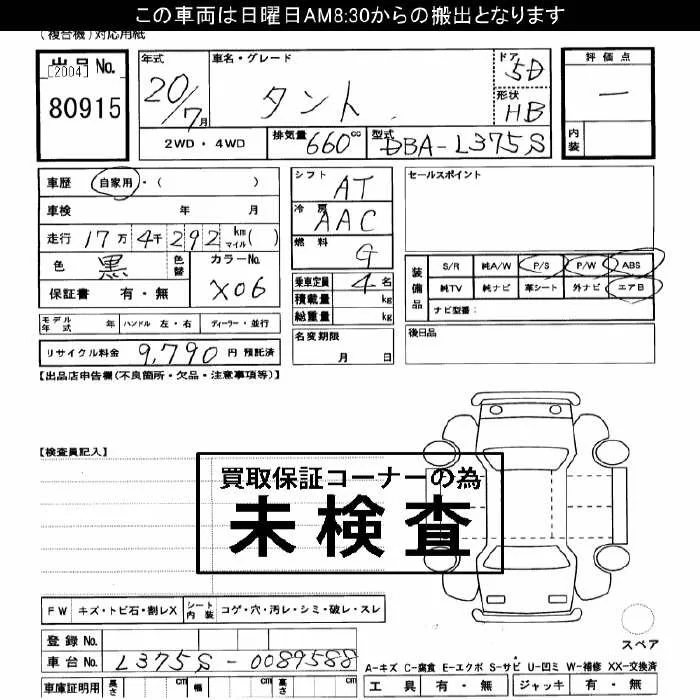 この車両は日曜日AM8:30からの搬出となります
(複合機)対応用紙
出品No. [2004] 80915
年式 20/7月
車名・グレード タント
ドア 5D
形状 HB
評価点 —
内装
2WD・4WD
排気量 660cc
型式 DBA-L375S
車歴 自家用・( )
車検 年 月
走行 17万4千292 km マイル( )
色 黒 色替 カラーNo. X06
保証書 有・無
シフト AT
冷房 AAC
燃料 G
乗車定員 4名
積載量 kg
総重量 kg
セールスポイント
装備品 S/R 純A/W P/S P/W ABS
純TV 純ナビ 革シート 外ナビ エアB
ナビ型番:
モデル年式 年 ハンドル 左・右 ディーラー・並行
名変期限 月 日
後日品
リサイクル料金 9,790 円 預託済
【出品店申告欄(不良箇所・欠品・注意事項等)】
【検査員記入】
買取保証コーナーの為
未検査
FW キズ・トビ石・割レX シート内装 コゲ・穴・汚レ・シミ・破レ・スレ
スペア
登録No.
車台No. L375S-0089588
A-キズ C-腐食 E-エクボ S-サビ U-凹ミ W-補修 XX-交換済
車庫証明用 長さ cm 幅 cm 高さ cm
工具 有・無 ジャッキ 有・無